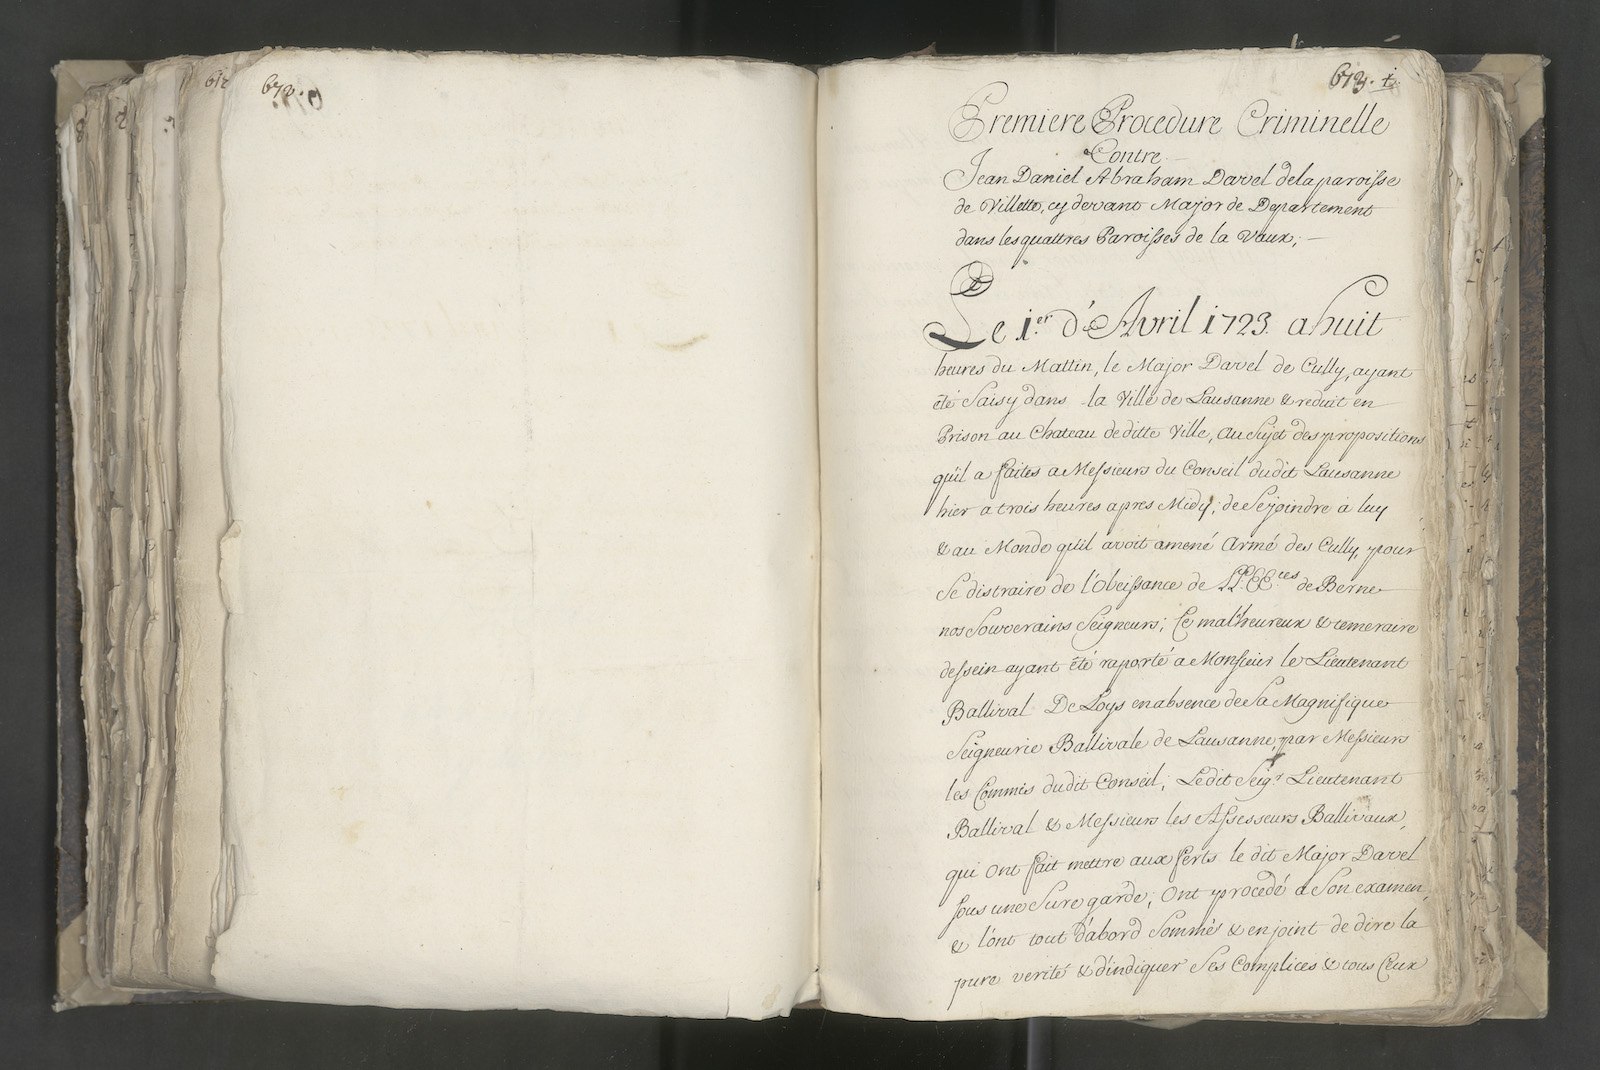 673.
673. 1.
Premiere Procedure Criminelle
Contre
Jean Daniel Abraham Davel de la paroisse
de Villette, cy devant Major de Departement
dans les quattres Paroisses de la Vaux; —
Le 1.er d'Avril 1723. a huit
heures du Mattin, le Major Davel de Cully, ayant
été Saisy dans la Ville de Lausanne & reduit en
Prison au Chateau de ditte Ville, au Sujet des propositions
qu'il a faites a Messieurs du Conseil dudit Lausanne
hier a trois heures apres Midy, de Se joindre a luy
& au Monde qu'il avoit amené Armé des Cully, pour
Se distraire de l'Obeissance de LL.EE.ces de Berne
nos Souverains Seigneurs; Ce mal'heureux & temeraire
dessein ayant été raporté a Monsieur le Lieutenant
Ballival De Loys en absence de Sa Magnifique
Seigneurie Ballivale de Lausanne, par Messieurs
les Commis dudit Conseil; Ledit Seigr Lieutenant
Ballival & Messieurs les Assesseurs Ballivaux,
qui ont fait mettre aux ferts le dit Major Davel
sous une Sure garde; Ont procedé a Son examen,
& l'ont tout d'abord Sommés & enjoint de dire la
pure verité & d'indiquer Ses Complices & tous Ceux